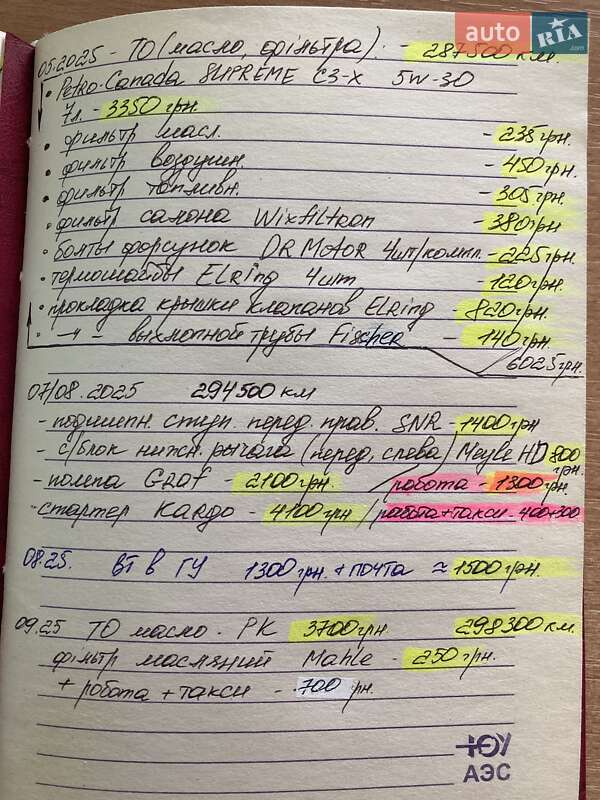 auto RIA.com
05.2025 - ТО (масло, фільтра). - 287500 км.
• Petro-Canada SUPREME C3-X 5W-30
7л. - 3350 грн.
• фильтр масл. - 235 грн.
• фильтр воздушн. - 450 грн.
• фильтр топливн. - 305 грн.
• фильтр салона Wixfiltron - 380 грн
• болты форсунок DR MOTOR 4шт/компл. - 225 грн
• термошайбы ELRing 4шт - 120 грн.
• прокладка крышки клапанов ELRing - 820 грн.
• -"- выхлопной трубы Fischer - 140 грн.
6025 грн.
07/08.2025 294500 км
- подшипн. ступ. перед. прав. SNR - 1400 грн
- с/блок нижн. рычага (перед, слева) Meyle HD 800 грн.
- помпа Graf - 2100 грн. работа - 1300 грн.
- стартер Kargo - 4100 грн / работа+такси - 400+300
08.25. ВТ в ГУ 1300 грн. + почта ≈ 1500 грн.
09.25 ТО масло. РК 3700 грн. 298300 км.
фільтр масляний Mahle - 250 грн.
+ робота + такси - 700 грн.
ЮУ
АЭС